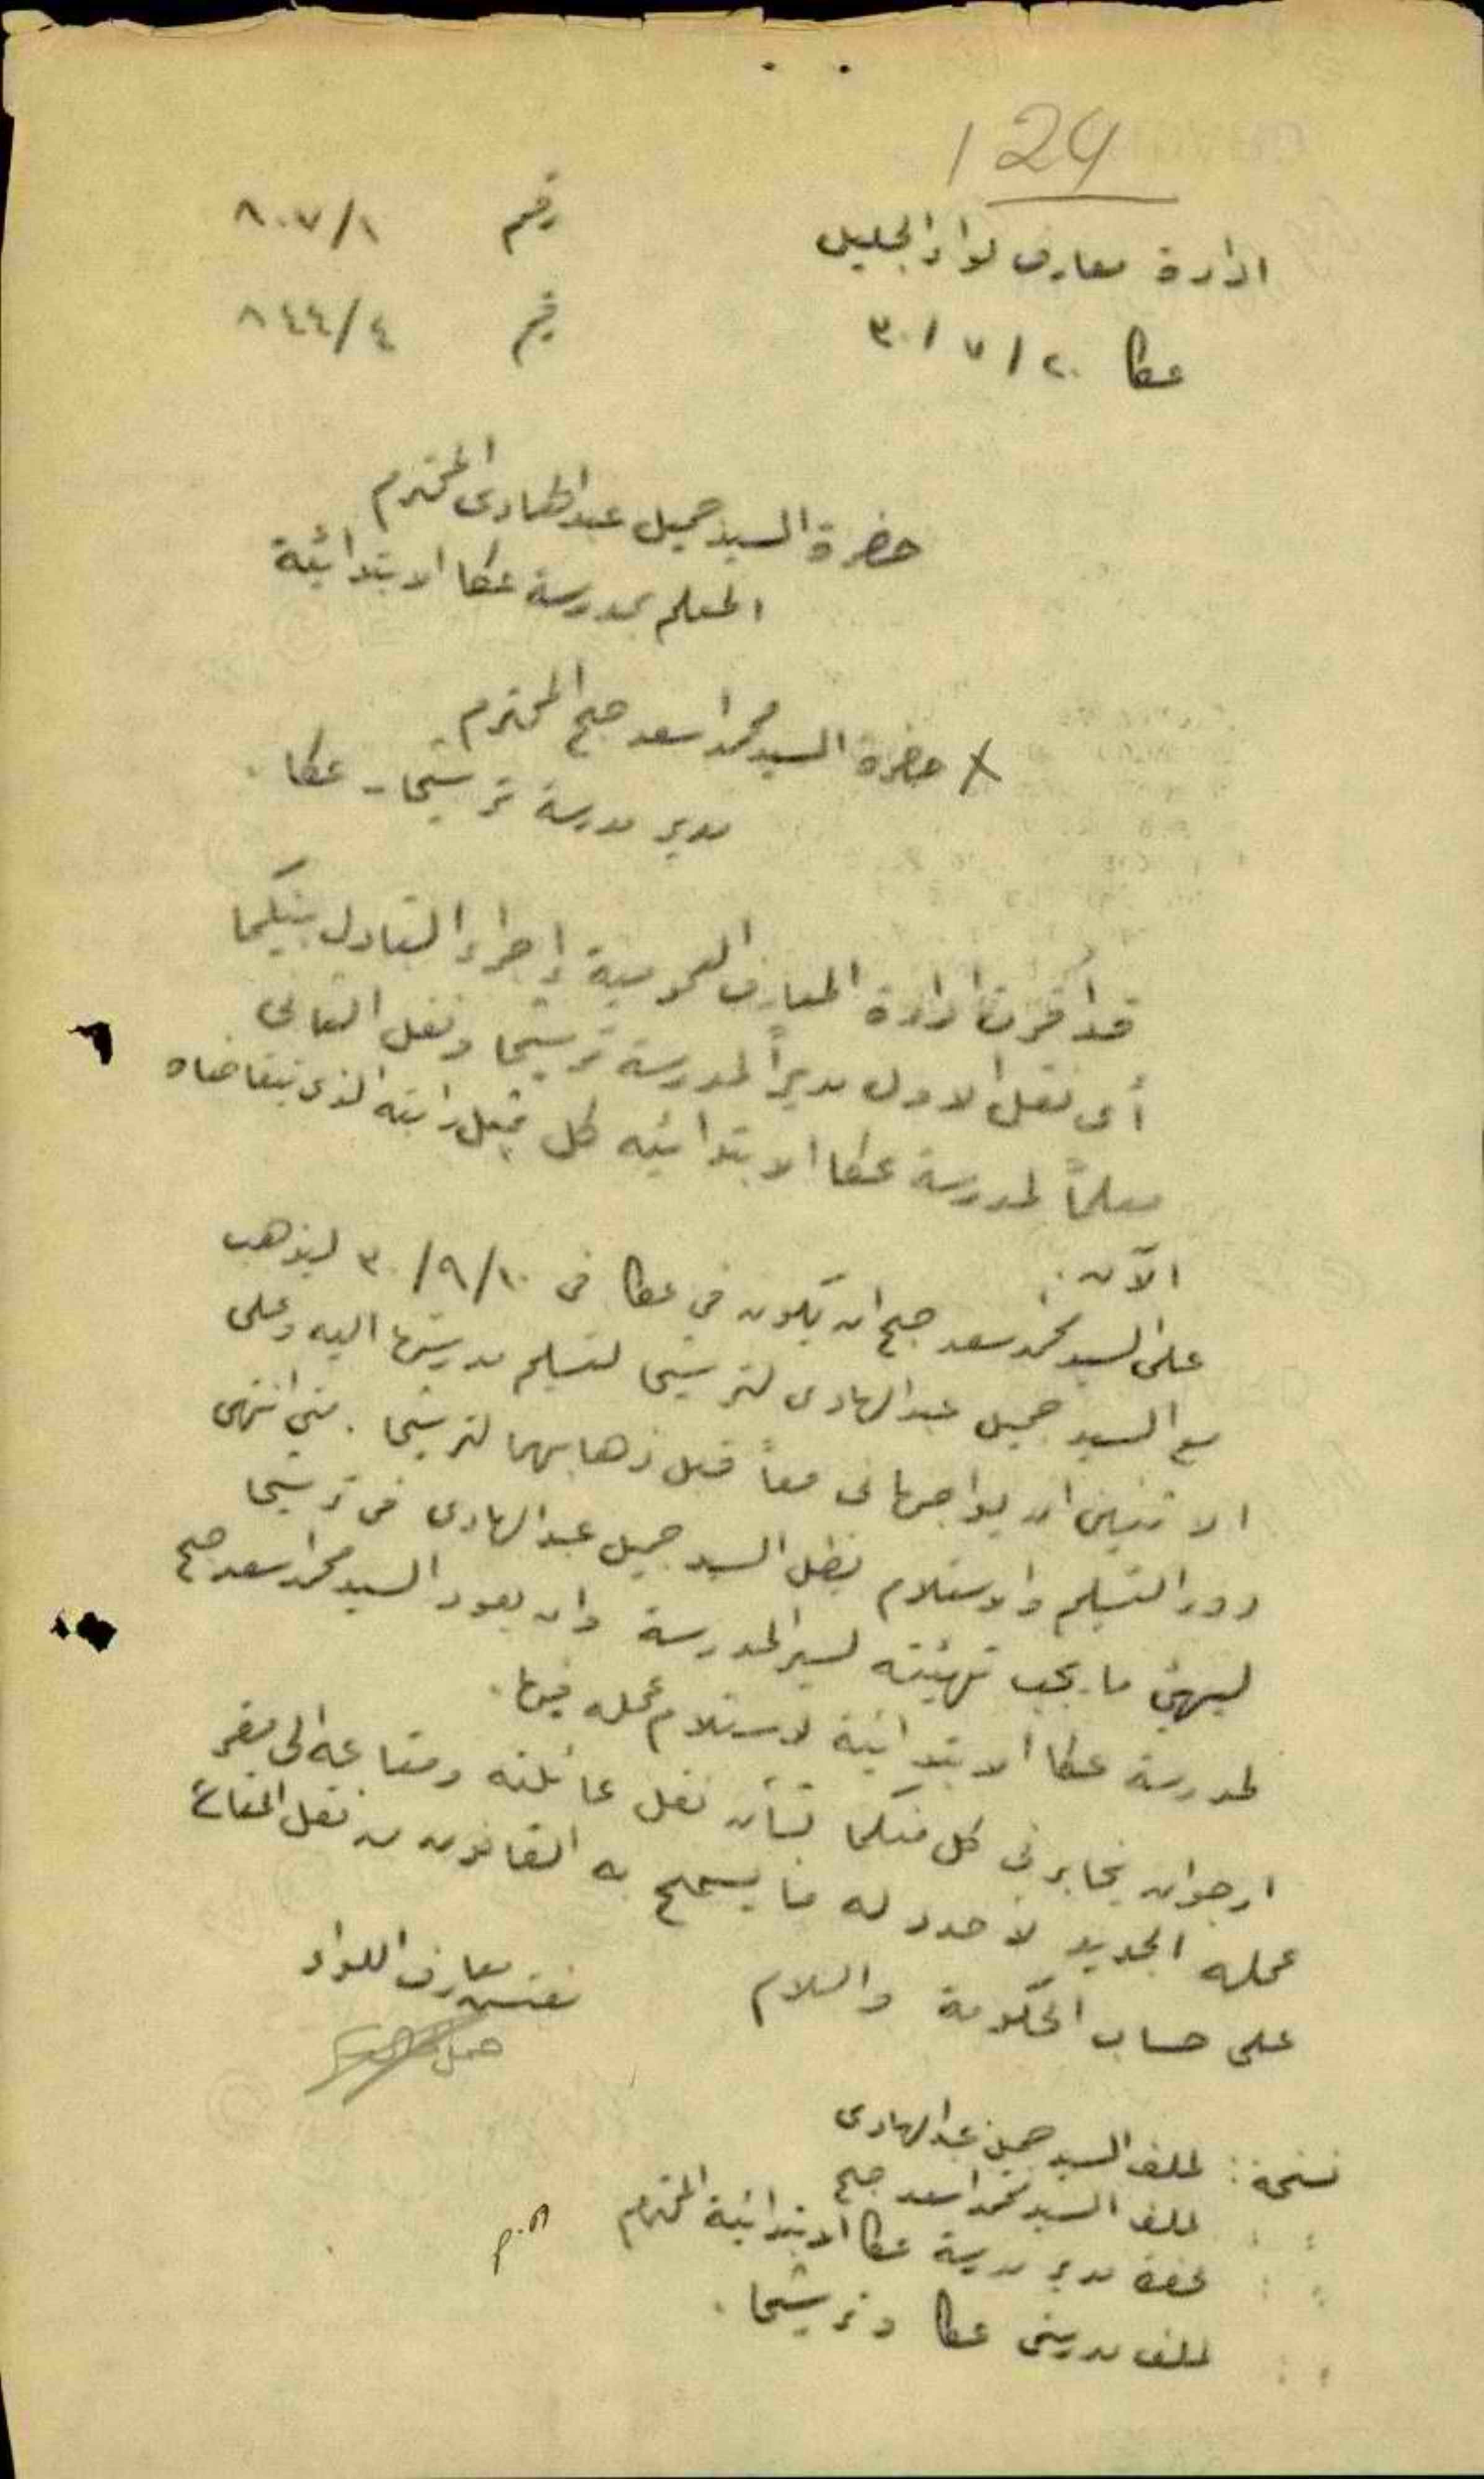 129
ادارة معارف لواء الجليل رقم ٨٠٧/١
عكا ٢٠ / ٧ / ٣٠ رقم ٨٤٤/٤
حضرة السيد جميل عبد الهادي المحترم
المعلم بمدرسة عكا الابتدائية
حضرة السيد محمد اسعد صبح المحترم
مدير مدرسة ترشيحا - عكا .
قد اقرت ادارة المعارف العمومية إجراء التبادل بينكما
أي نقل الاول مديراً لمدرسة ترشيحا ونقل الثاني
معلماً لمدرسة عكا الابتدائيه كل بمثل راتبه الذي يتقاضاه
الآن .
على السيد محمد اسعد صبح ان يكون في عكا في ١٠/٩/٣٠ ليذهب
مع السيد جميل عبد الهادي لترشيحا لتسليم مدرستها اليه وعلى
الاثنين ان يواجهاني معاً قبل ذهابهما لترشيحا . متى انتهى
دور التسليم والاستلام يظل السيد جميل عبد الهادي في ترشيحا
ليهيئ ما يجب تهيئته لسير المدرسة وان يعود السيد محمد اسعد صبح
لمدرسة عكا الابتدائية لاستلام عمله فيها .
ارجو ان يخابرني كل منكما بشأن نقل عائلته ومتاعه الى مقر
عمله الجديد لاحدد له ما يسمح به القانون من نقل المتاع
على حساب الحكومة والسلام
مفتش معارف اللواء
نسخة : لملف السيد جميل عبد الهادي
: : لملف السيد محمد اسعد صبح
: : لحضرة مدير مدرسة عكا الابتدائية المحترم
: : لملف مدرستي عكا وترشيحا .